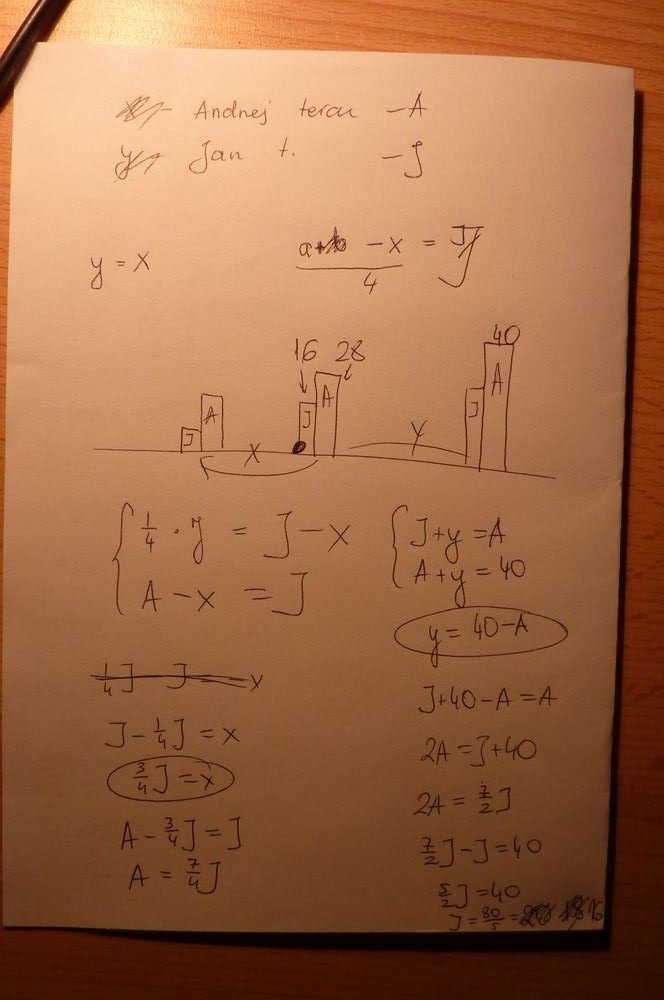 Andrzej teraz - A
Jan t. - J
y = x
a+b - x = J
4
16 28
40
J A
J A
J A
x
y
1/4 · J = J - x
A - x = J
J + y = A
A + y = 40
y = 40 - A
1/4 J J x
J - 1/4 J = x
3/4 J = x
A - 3/4 J = J
A = 7/4 J
J + 40 - A = A
2A = J + 40
2A = 7/2 J
7/2 J - J = 40
5/2 J = 40
J = 80/5 = 16